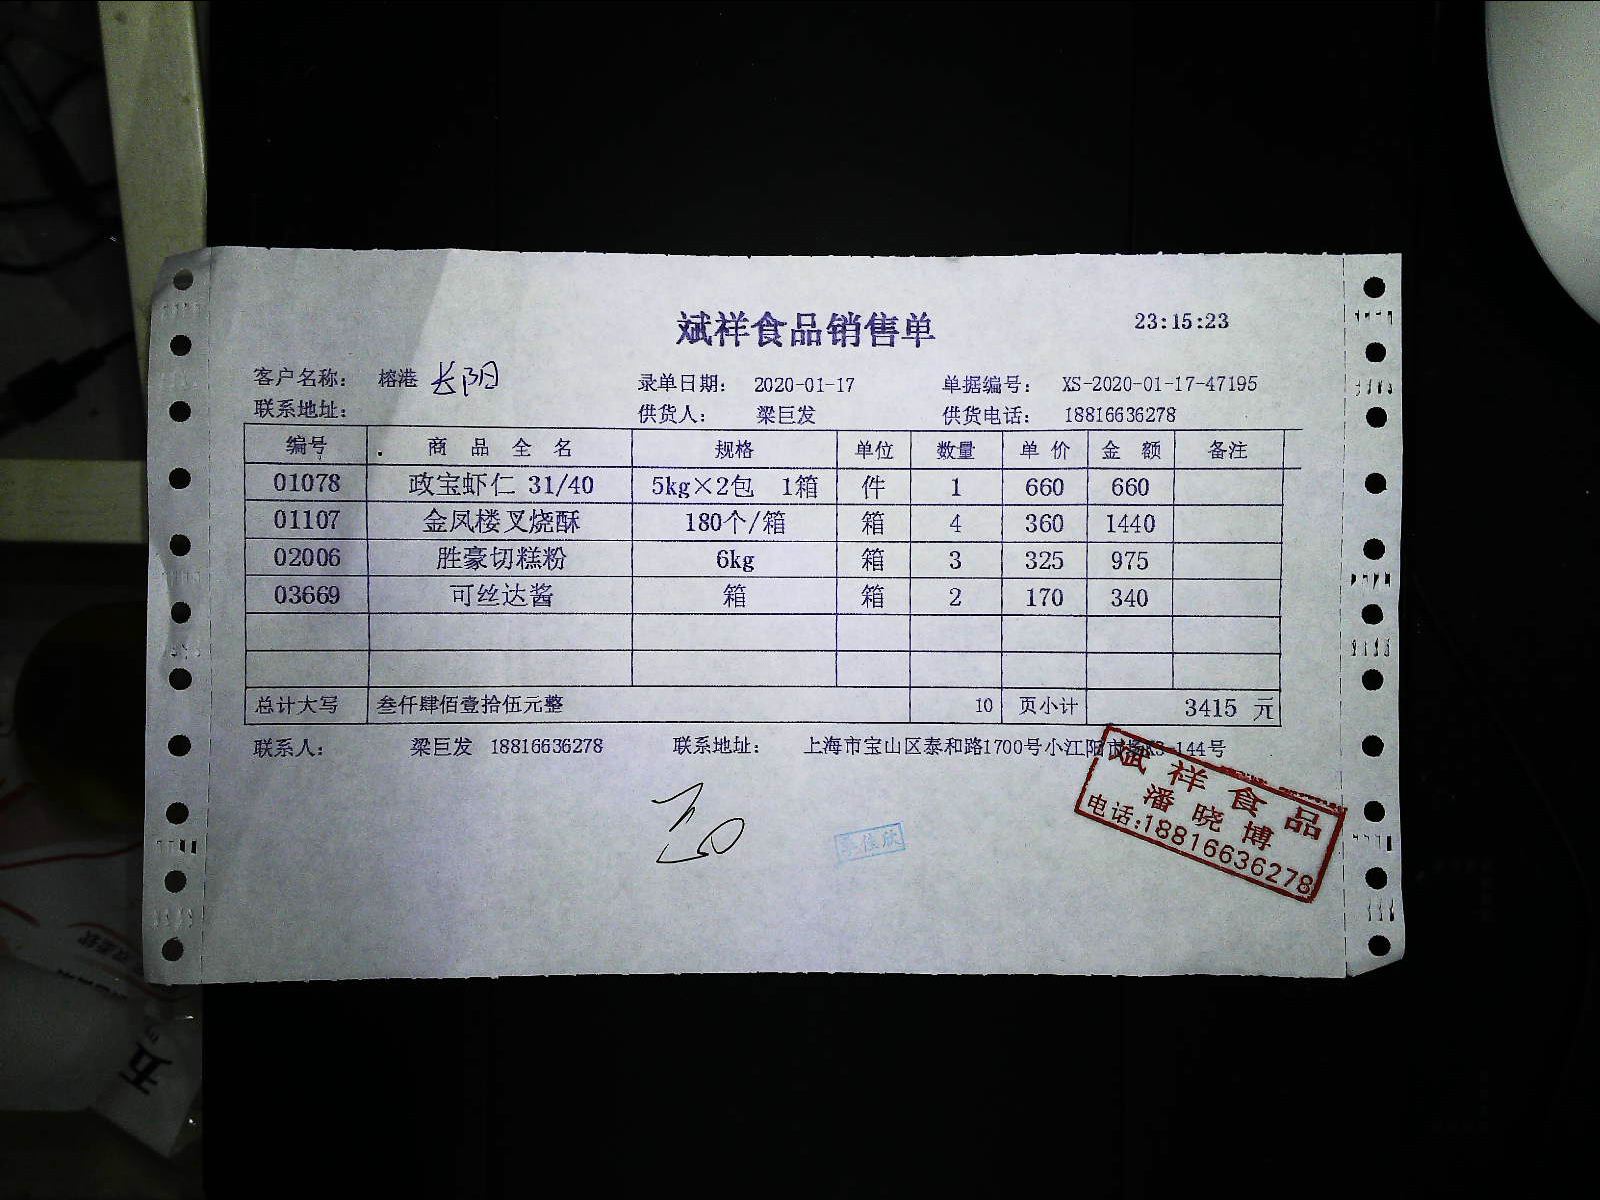 斌祥食品销售单 23:15:23
客户名称： 榕港 长阳 录单日期： 2020-01-17 单据编号： XS-2020-01-17-47195
联系地址： 供货人： 梁巨发 供货电话： 18816636278
编号 商品全名 规格 单位 数量 单价 金额 备注
01078 政宝虾仁 31/40 5kg×2包 1箱 件 1 660 660
01107 金凤楼叉烧酥 180个/箱 箱 4 360 1440
02006 胜豪切糕粉 6kg 箱 3 325 975
03669 可丝达酱 箱 箱 2 170 340
总计大写 叁仟肆佰壹拾伍元整 10 页小计 3415 元
联系人： 梁巨发 18816636278 联系地址： 上海市宝山区泰和路1700号小江阳市 144号
斌祥食品
潘晓博
电话:18816636278
五